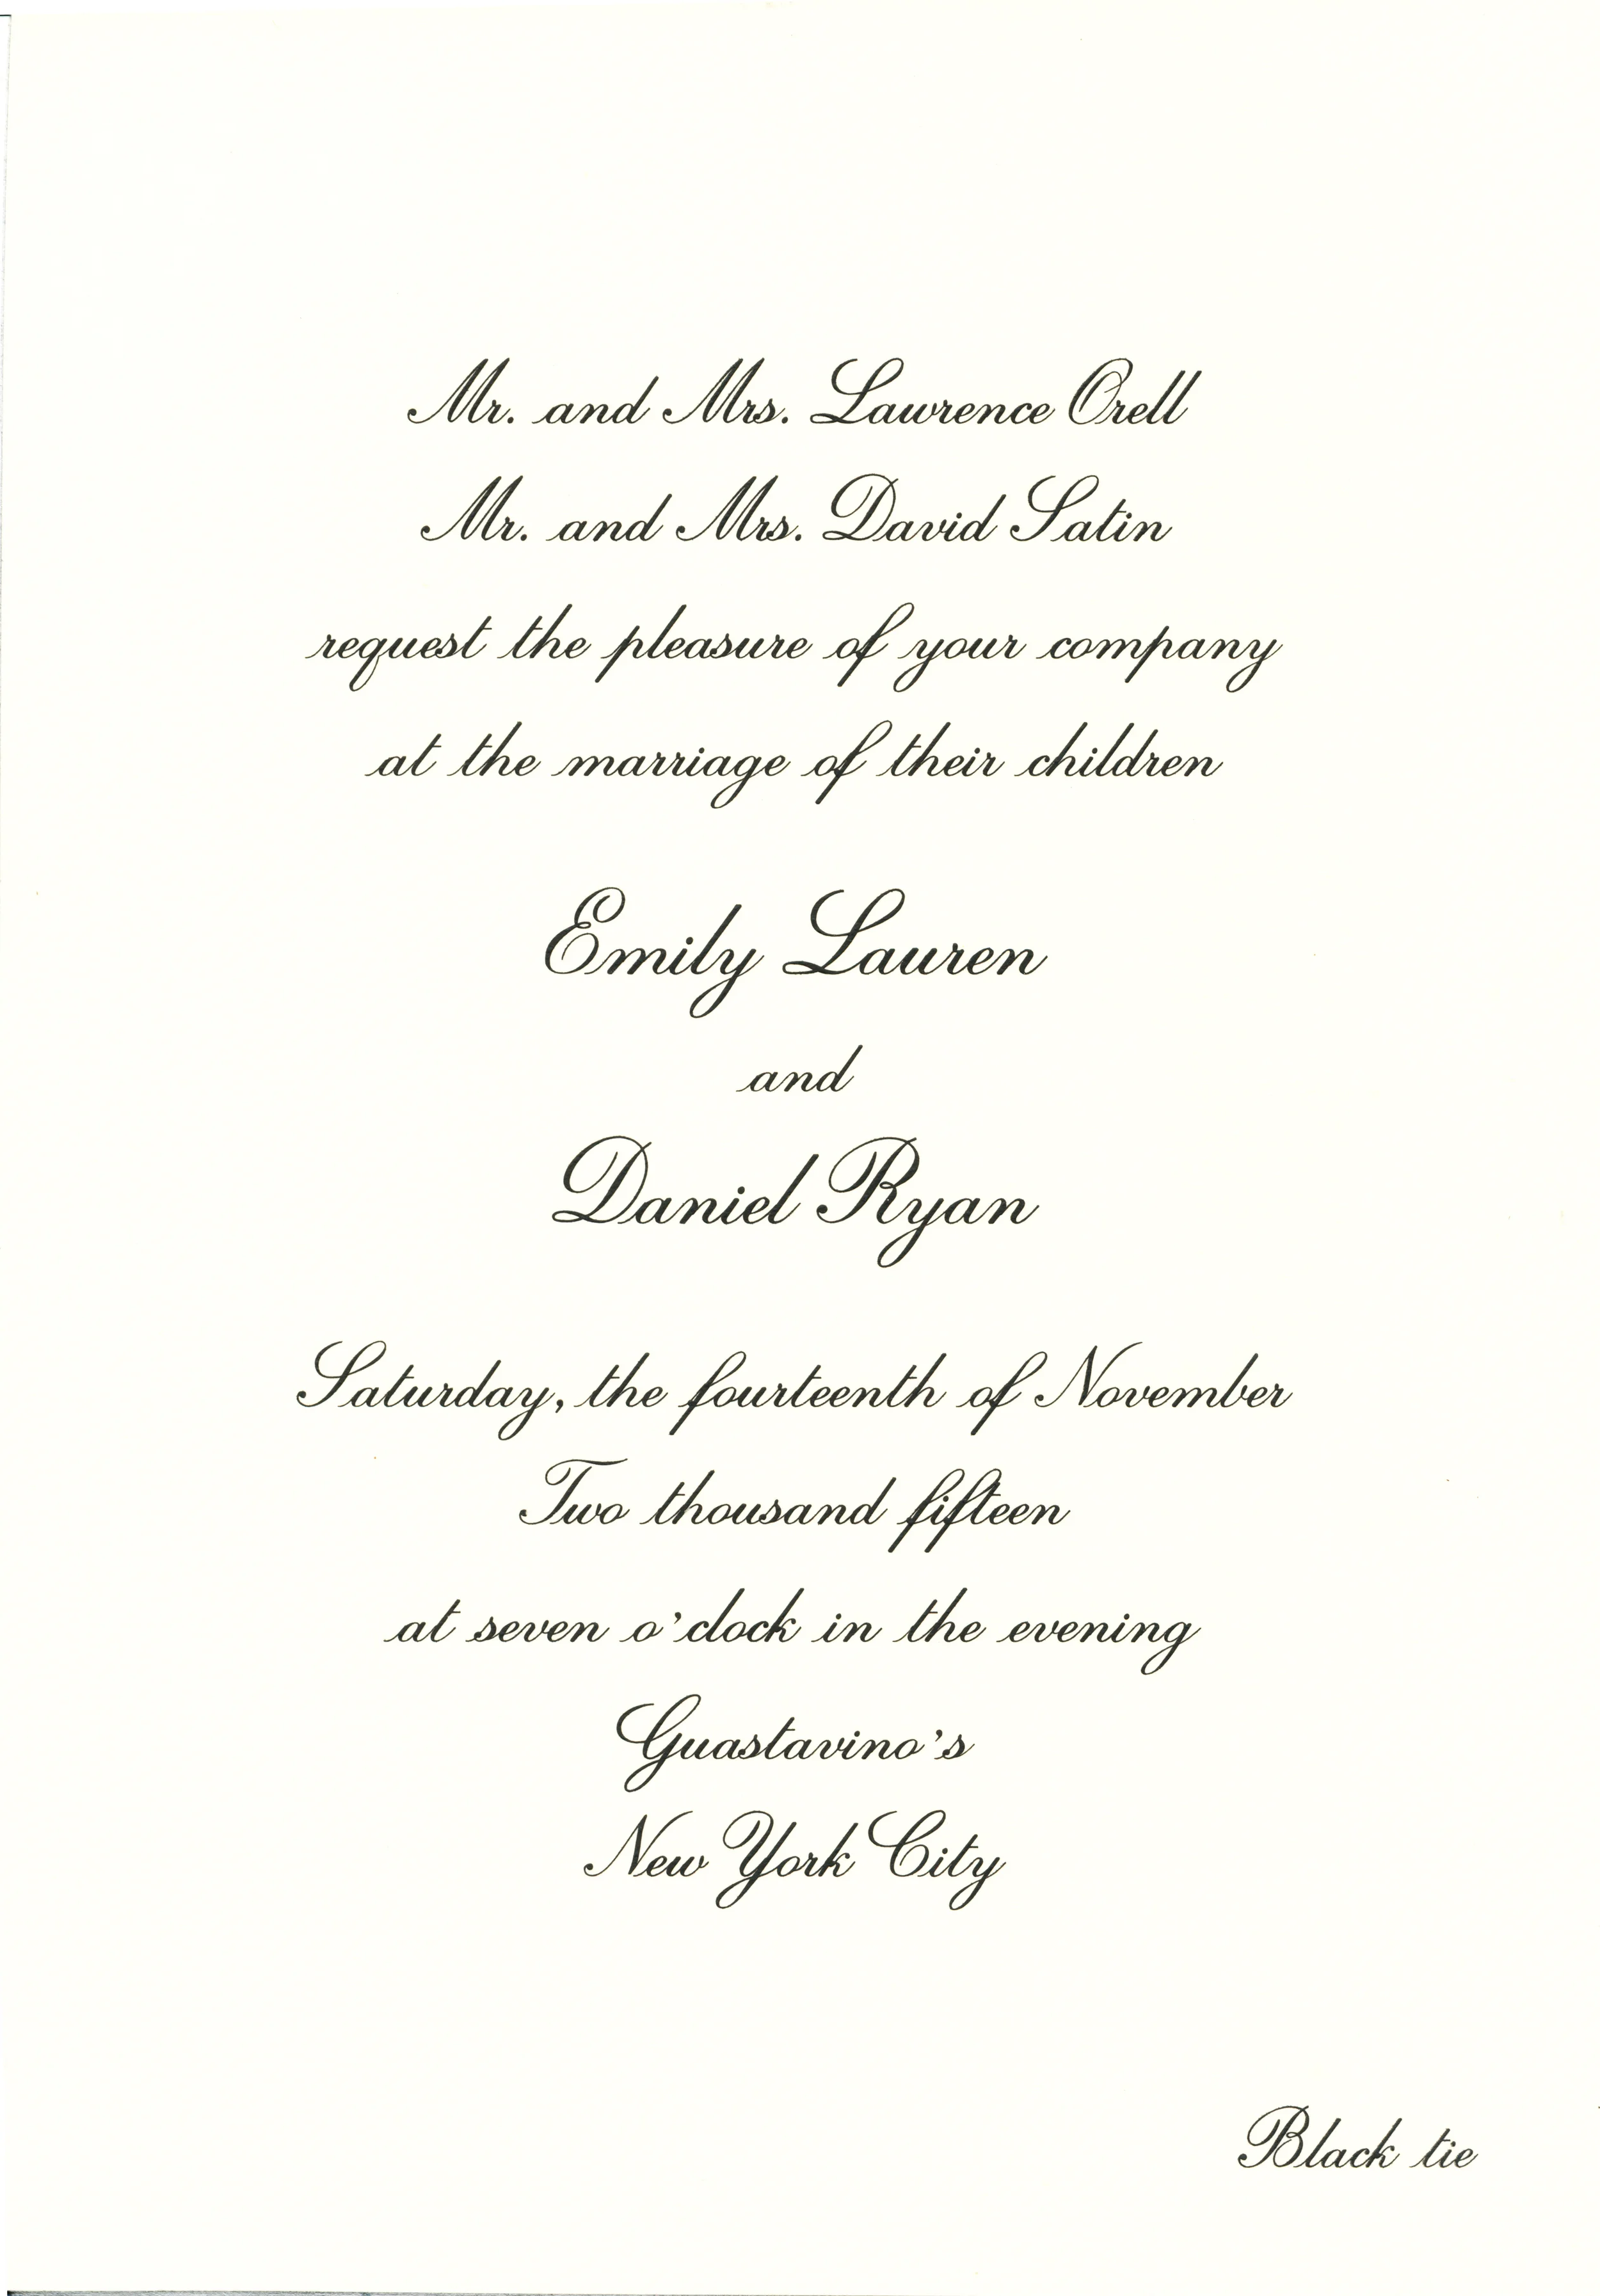 Mr. and Mrs. Lawrence Orell
Mr. and Mrs. David Satin
request the pleasure of your company
at the marriage of their children
Emily Lauren
and
Daniel Ryan
Saturday, the fourteenth of November
Two thousand fifteen
at seven o'clock in the evening
Guastavino's
New York City
Black tie